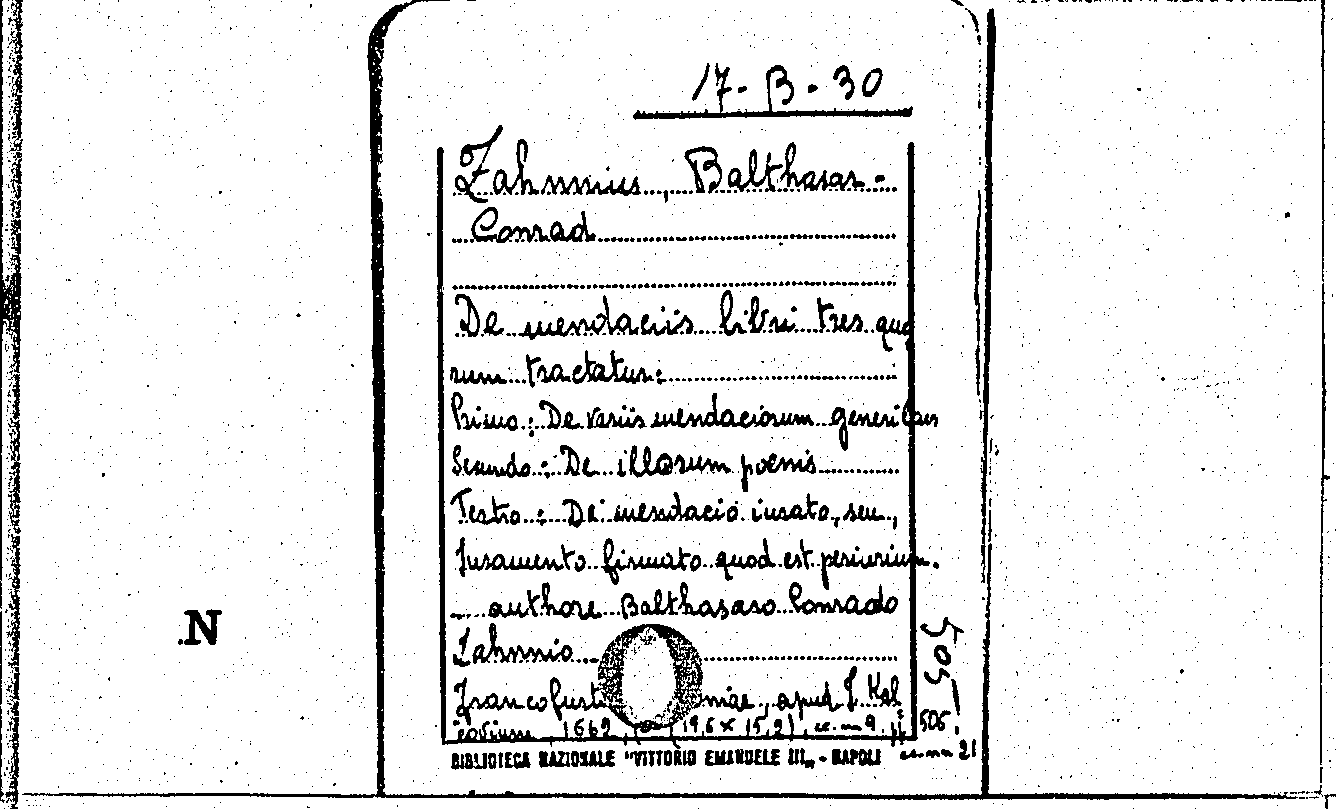 17-B-30
Zahnnius, Balthasar-
Conrad
De mendaciis libri tres quo
rum tractatur:
Primo: De variis mendaciorum generibus
Secundo: De illorum poenis
Tertio: De mendacio iurato, seu,
Juramento firmato quod est periurium.
authore Balthasaro Conrado
Zahnnio
N
Francofurti apud J.
1662 (19,6 x 15,2), cc. nn 9
505
505. cc. nn 21
BIBLIOTECA NAZIONALE "VITTORIO EMANUELE III„ - NAPOLI